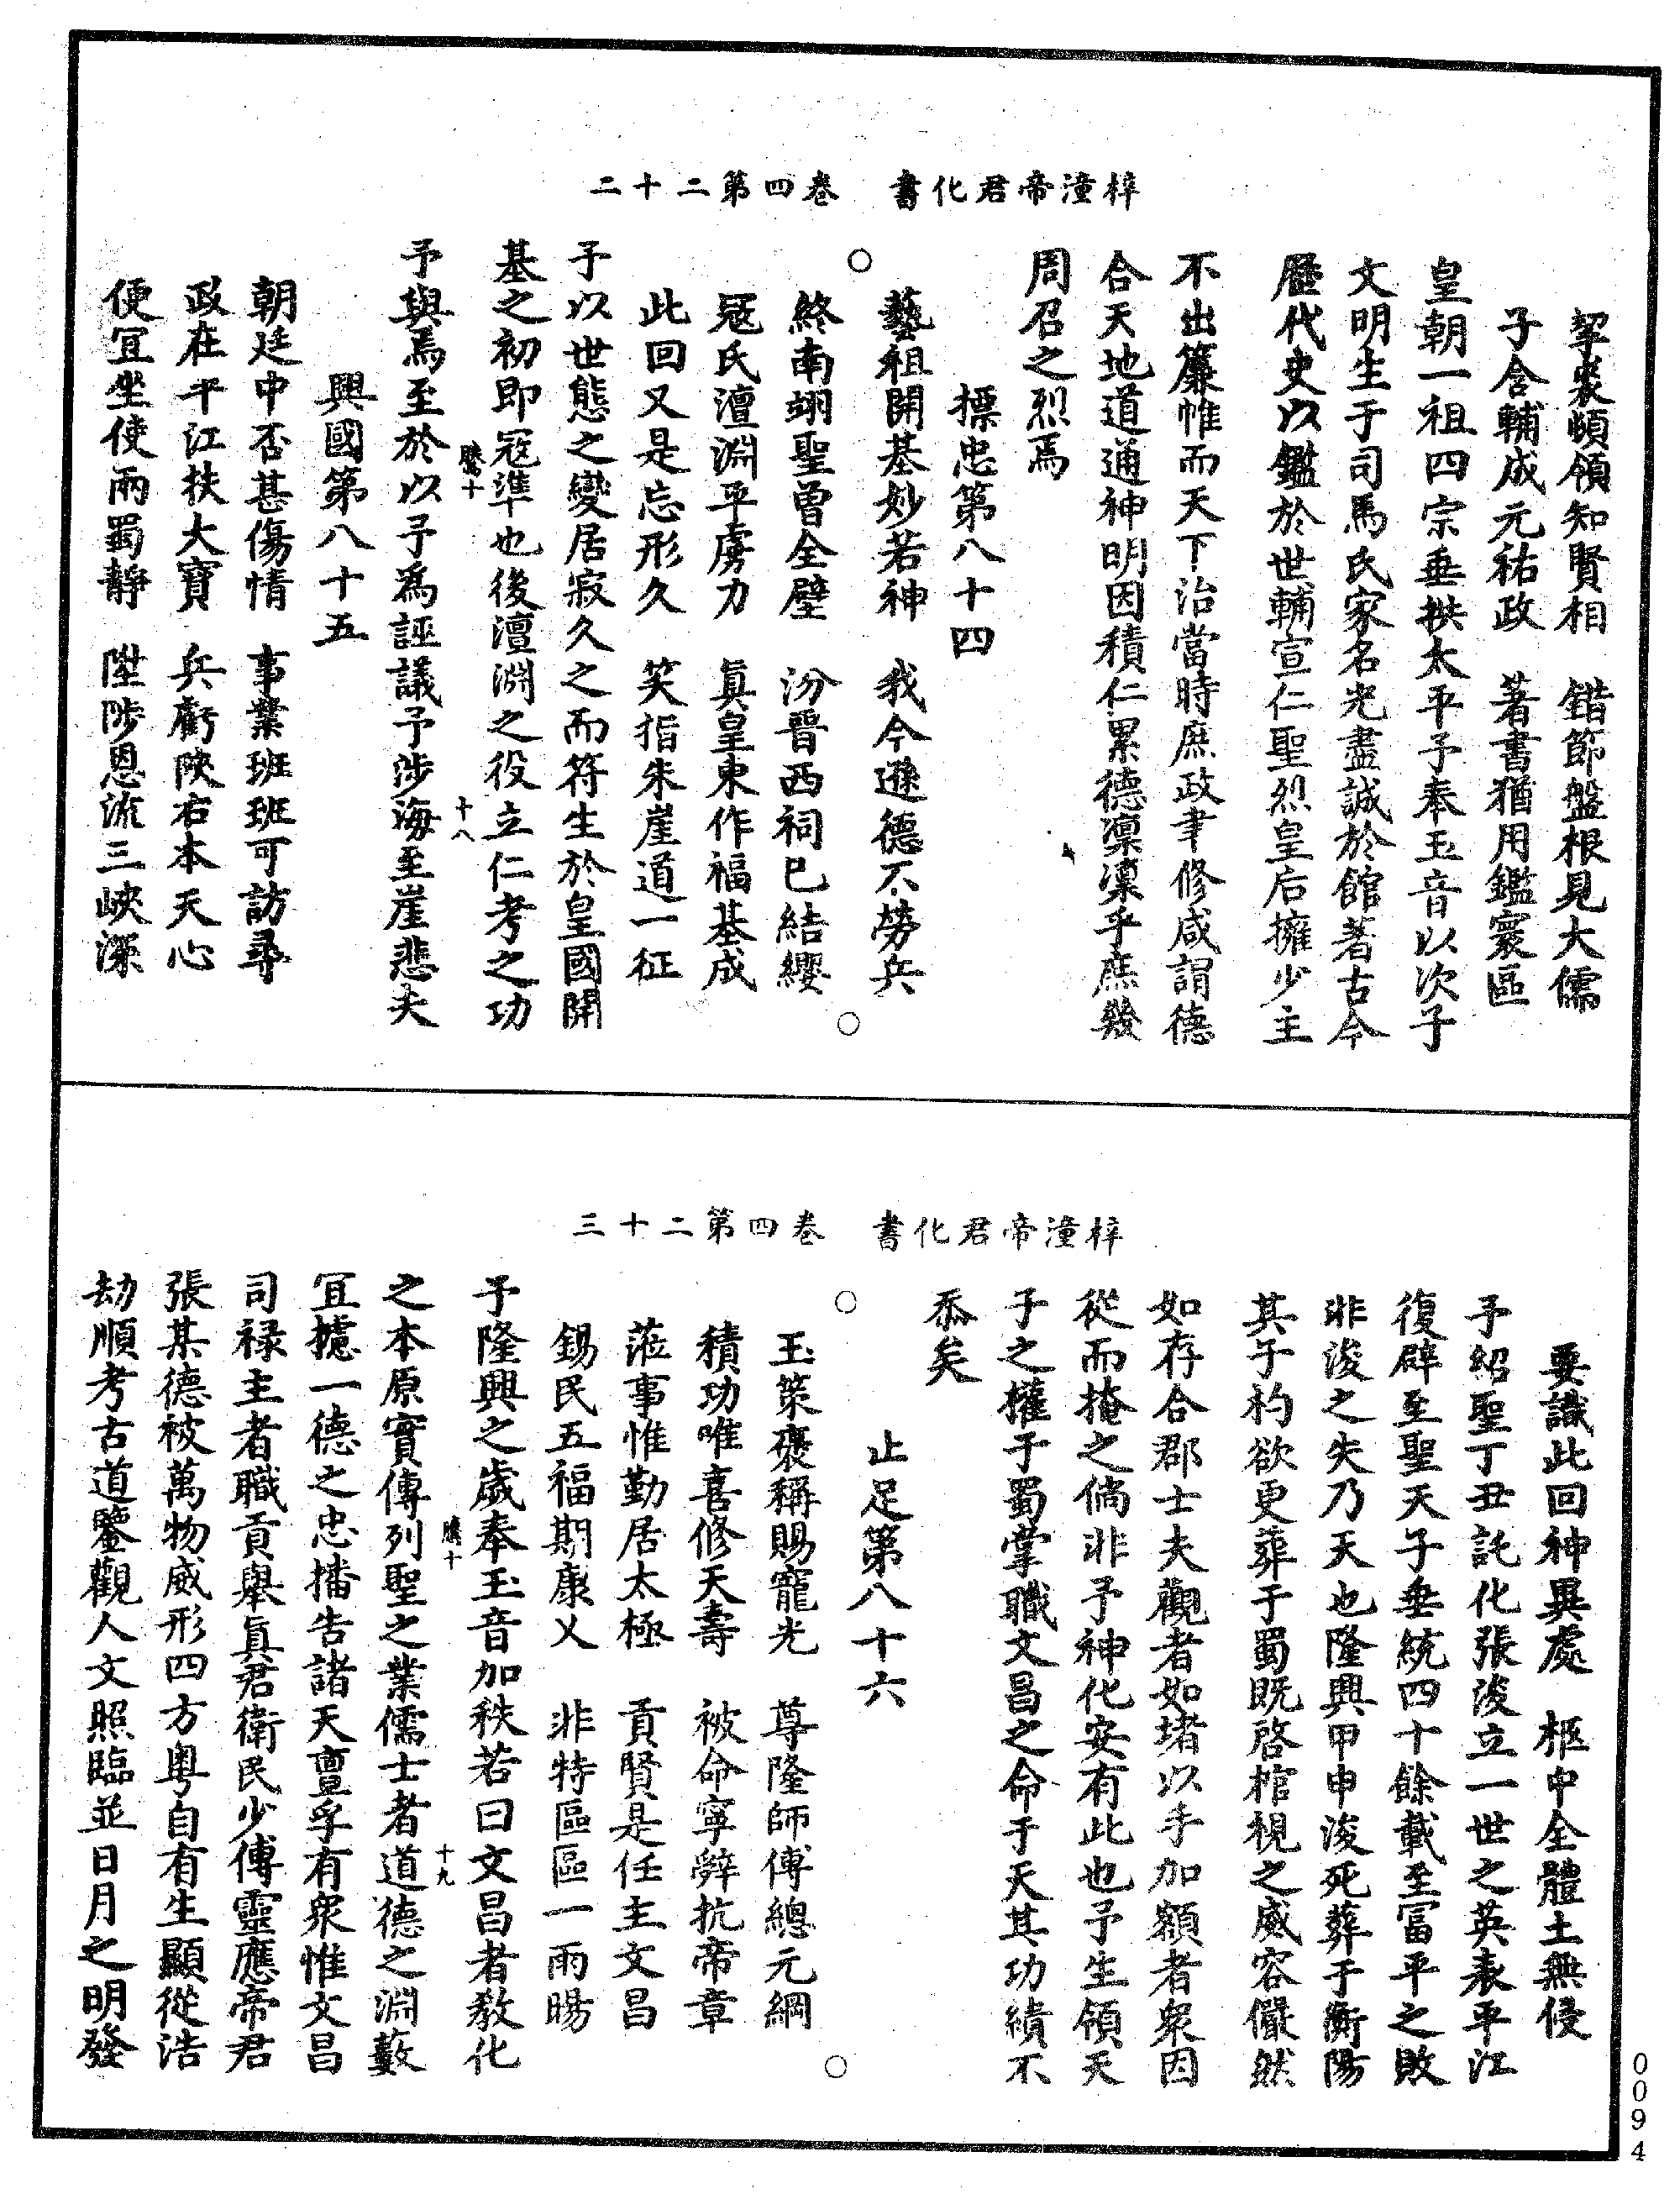 梓潼帝君化書　卷四第二十二
挈裘頓領知賢相　錯節盤根見大儒
子含輔成元祐政　著書猶用鑑寰區
皇朝一祖四宗垂拱太平予奉玉音以次子
文明生于司馬氏家名光盡誠於館著古今
歷代史以鑑於世輔宣仁聖烈皇后擁少主
不出簾帷而天下治當時庶政聿修咸謂德
合天地道通神明因積仁累德凜凜乎庶幾
周召之烈焉
摽忠第八十四
藝祖開基妙若神　我今遜德不勞兵
終南翊聖曾全璧　汾晉西祠已結纓
寇氏澶淵平虜力　眞皇東作福基成
此回又是忘形久　笑指朱崖道一征
予以世態之變居寂久之而符生於皇國開
基之初即寇準也後澶淵之役立仁考之功
騰十　十八
予與焉至於以予爲誣議予涉海至崖悲夫
興國第八十五
朝廷中否甚傷情　事業班班可訪尋
政在平江扶大寶　兵虧陝右本天心
便宜坐使兩蜀靜　陞陟恩流三峽深
梓潼帝君化書　卷四第二十三
要識此回神異處　柩中全體土無侵
予紹聖丁丑託化張浚立一世之英表平江
復辟至聖天子垂統四十餘載至富平之敗
非浚之失乃天也隆興甲申浚死葬于衡陽
其子杓欲更葬于蜀既啓棺視之威容儼然
如存合郡士夫觀者如堵以手加額者衆因
從而掩之倘非予神化安有此也予生領天
子之權于蜀掌職文昌之命于天其功績不
忝矣
止足第八十六
玉策褒稱賜寵光　尊隆師傅總元綱
積功唯喜修天壽　被命寧辭抗帝章
蒞事惟勤居太極　貢賢是任主文昌
錫民五福期康乂　非特區區一雨暘
予隆興之歲奉玉音加秩若曰文昌者敎化
騰十　十九
之本原實傳列聖之業儒士者道德之淵藪
宜攄一德之忠播告諸天亶孚有衆惟文昌
司祿主者職貢舉眞君衛民少傅靈應帝君
張某德被萬物威形四方粵自有生顯從浩
劫順考古道鑒觀人文照臨並日月之明發
0094